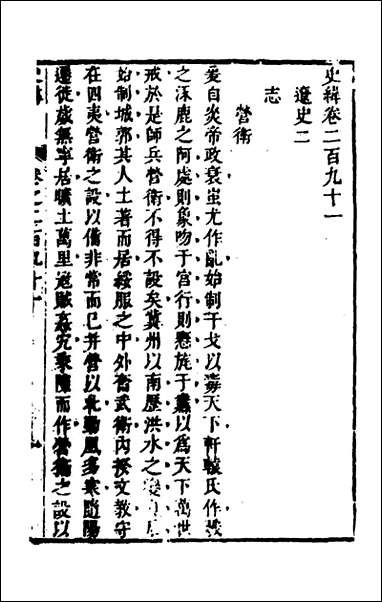 史緯卷二百九十一
遼史二
志
營衛
爰自炎帝政衰蚩尤作亂始制干戈以毒天下軒轅氏作戮
之涿鹿之阿處則象吻于宮行則懸旄于纛以為天下萬世
戒於是師兵營衛不得不設矣冀州以南歷洪水之變
始制城郭其人土著而居綏服之中外奮武衛內揆文教守
在四夷營衛之設以備非常而已并營以北勁風多寒隨陽
遷徙歲無寧居曠土萬里寇賊姦宄乘隙而作營衛之設以
卷之二百九十一